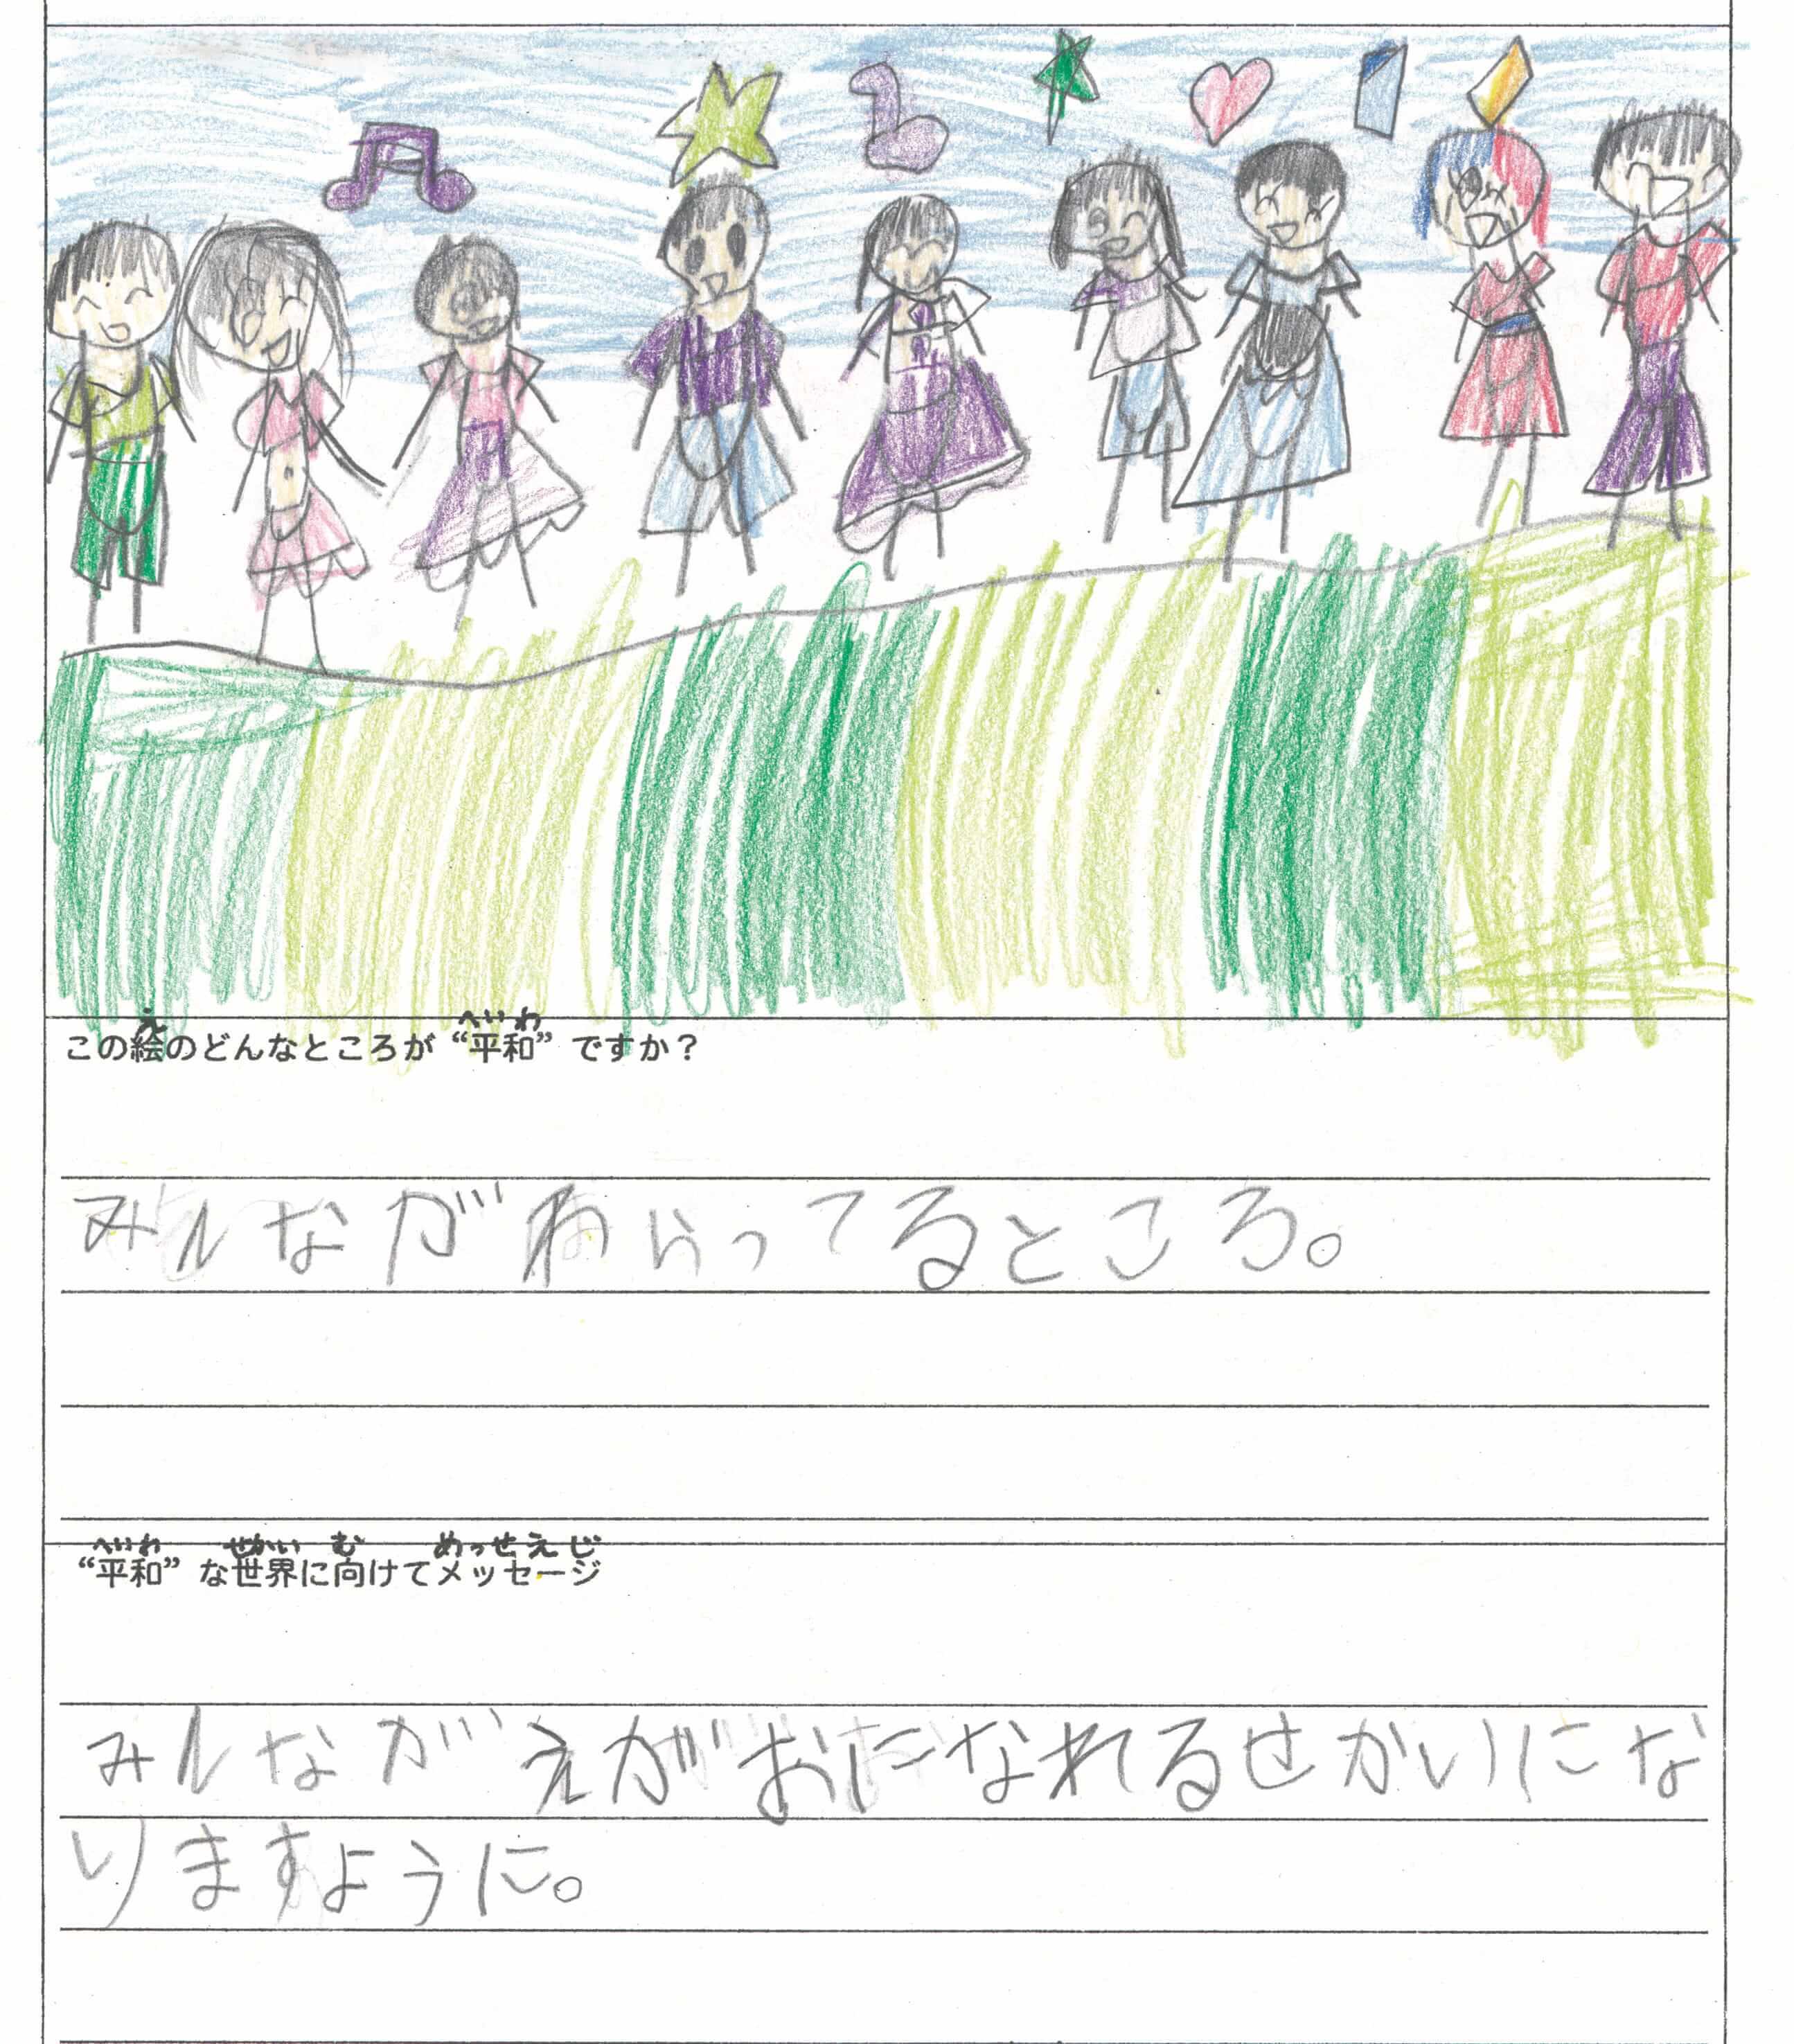 え へいわ
この絵のどんなところが“平和”ですか？
みんながわらってるところ。
へいわ せかい む めっせえじ
“平和”な世界に向けてメッセージ
みんながえがおになれるせかいにな
りますように。